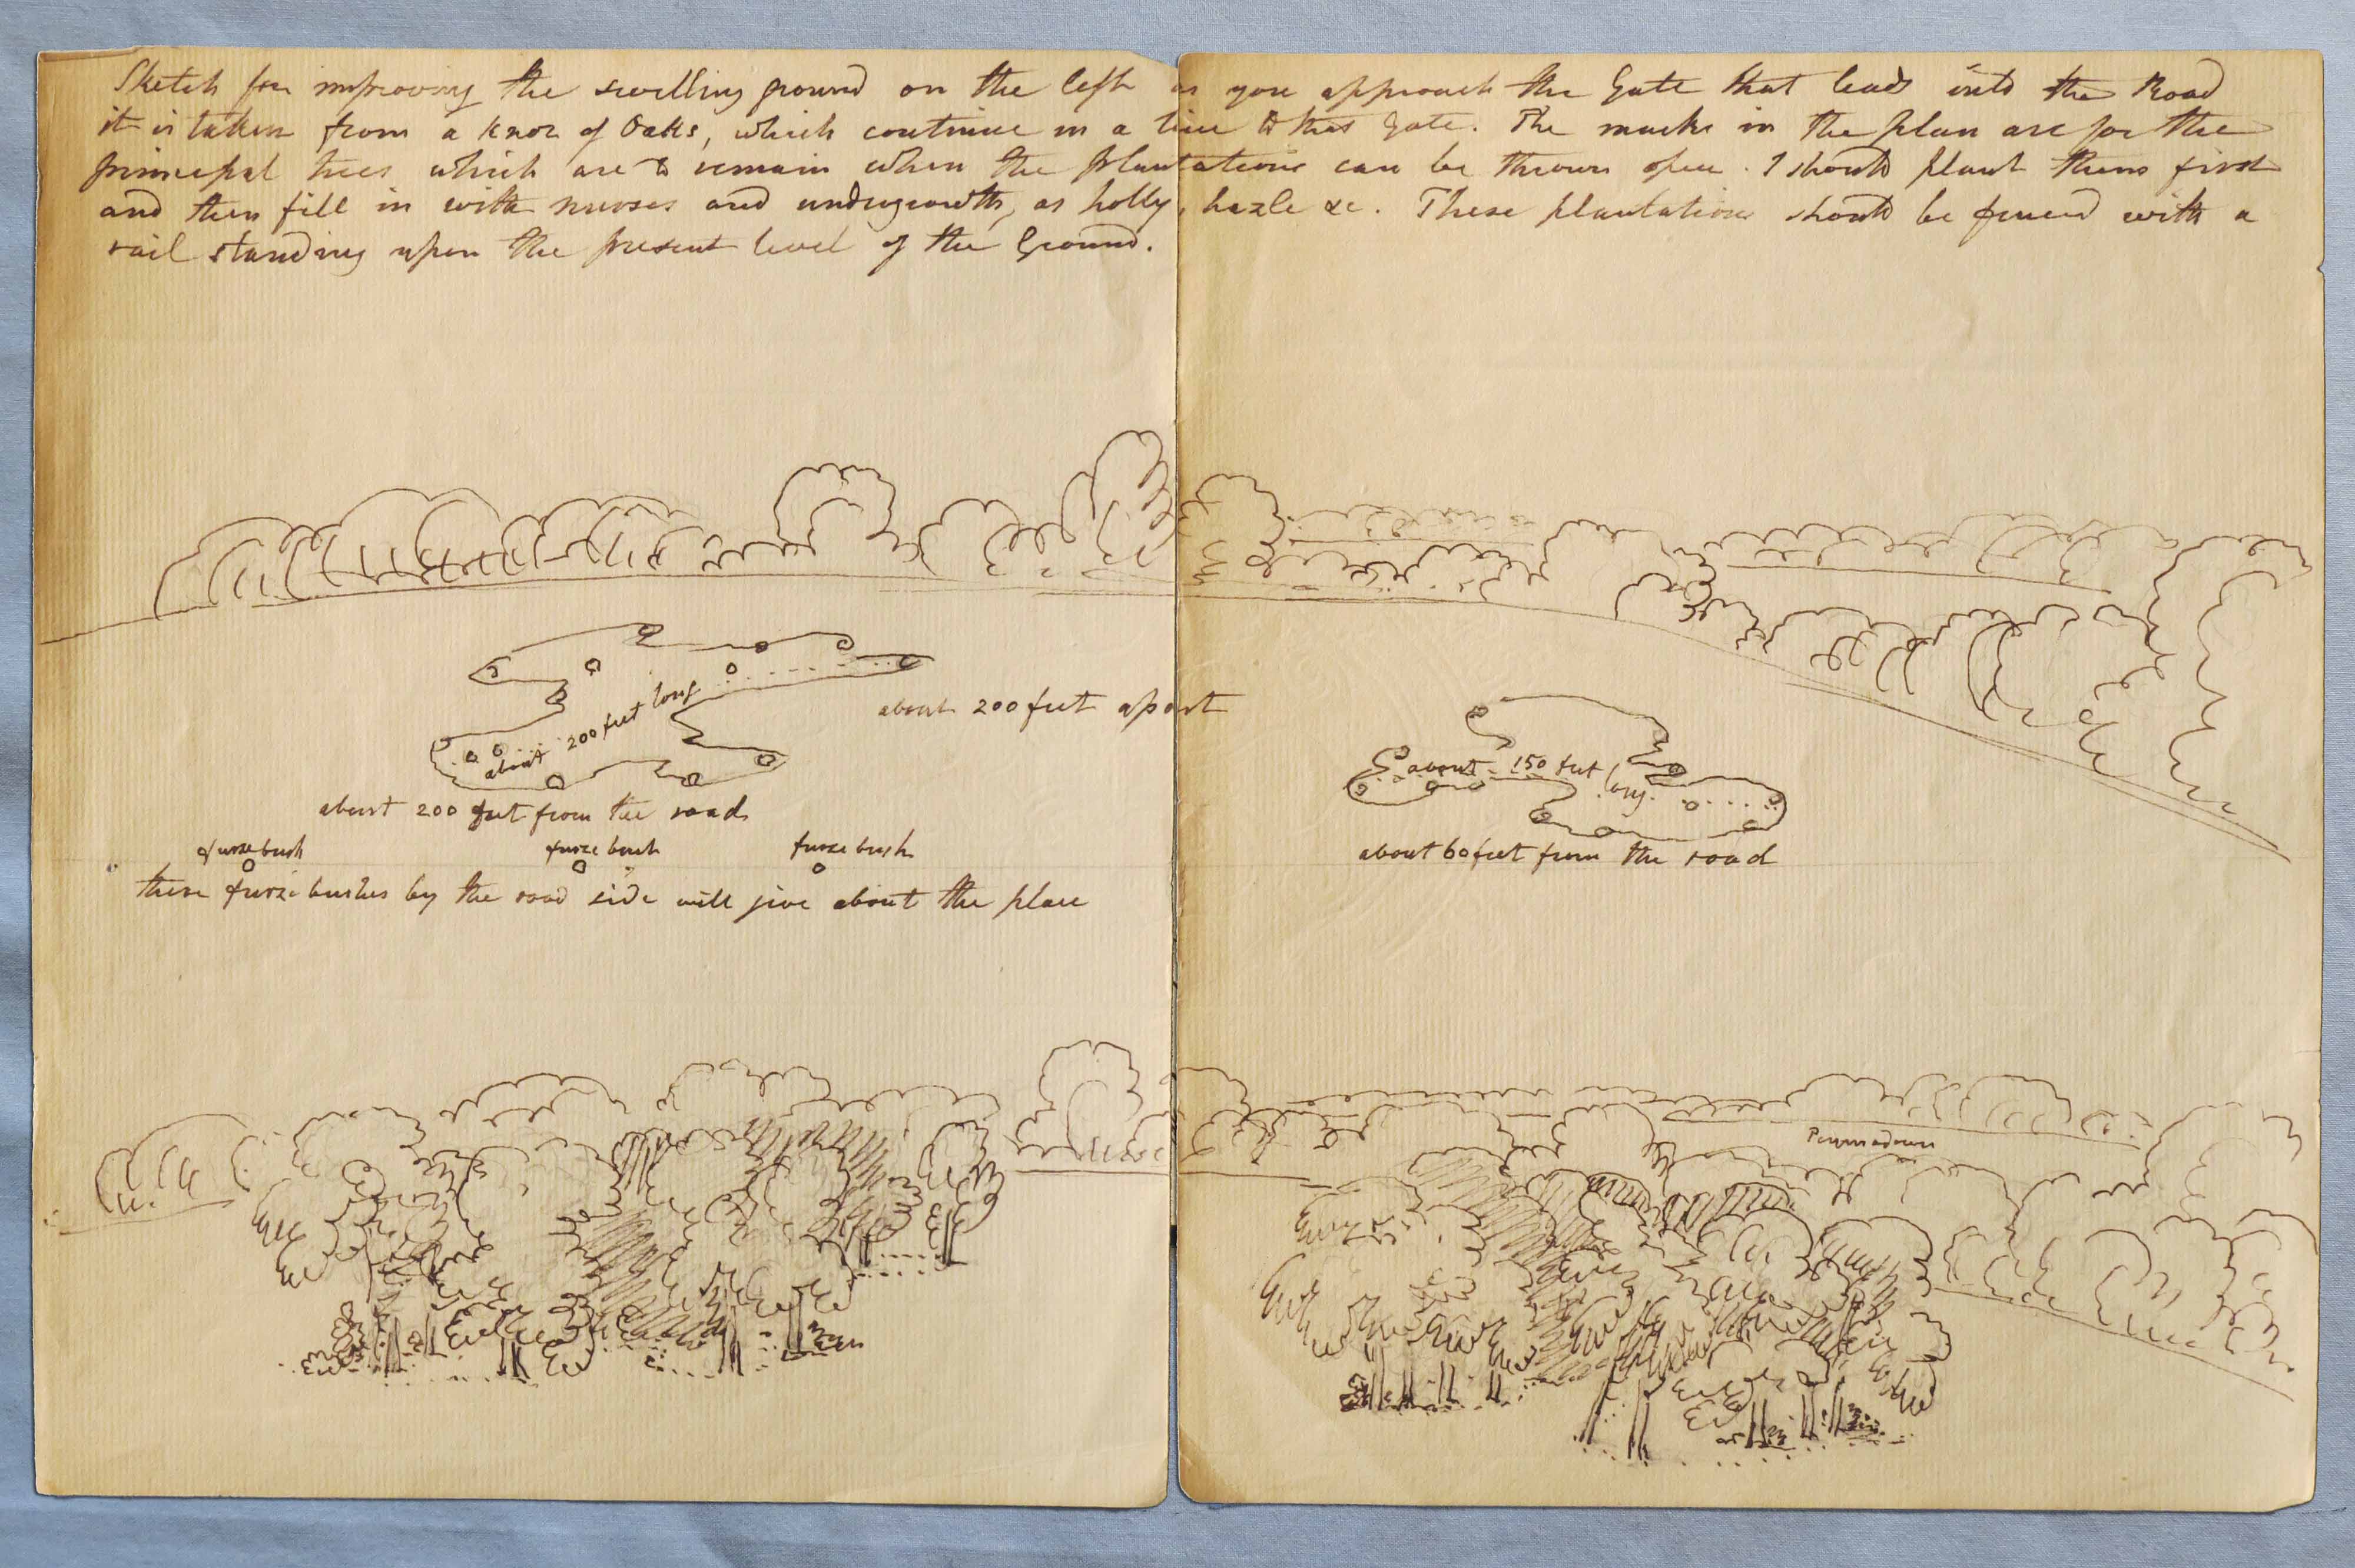 Sketch for improving the swelling ground on the left as you approach the Gate that leads into the Road
it is taken from a knot of Oaks, which continue in a line to that Gate. The marks in the plan are for the
principal trees which are to remain when the plantations can be thrown open. I should plant them first
and then fill in with nurses and undergrowth, as holly, hazle &c. These plantations should be fenced with a
rail standing upon the present level of the Ground.
about 200 feet long
about 200 feet apart
about 150 feet long.
about 200 feet from the road
about 60 feet from the road
furze bush furze bush furze bush
these furze bushes by the road side will give about the place